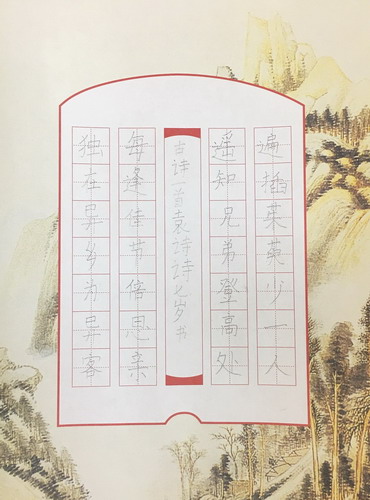 独在异乡为异客
每逢佳节倍思亲
古诗一首袁诗诗七岁书
遥知兄弟登高处
遍插茱萸少一人